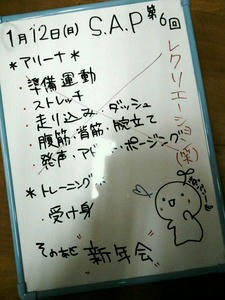 1月12日(月) S.A.P 第6回
*アリーナ*
・準備運動
・ストレッチ
・走り込み・ダッシュ
・腹筋・背筋・腕立て
・発声・アド ・ポージング
レクリエーション(笑)
*トレーニング
・受け身
その後 新年会